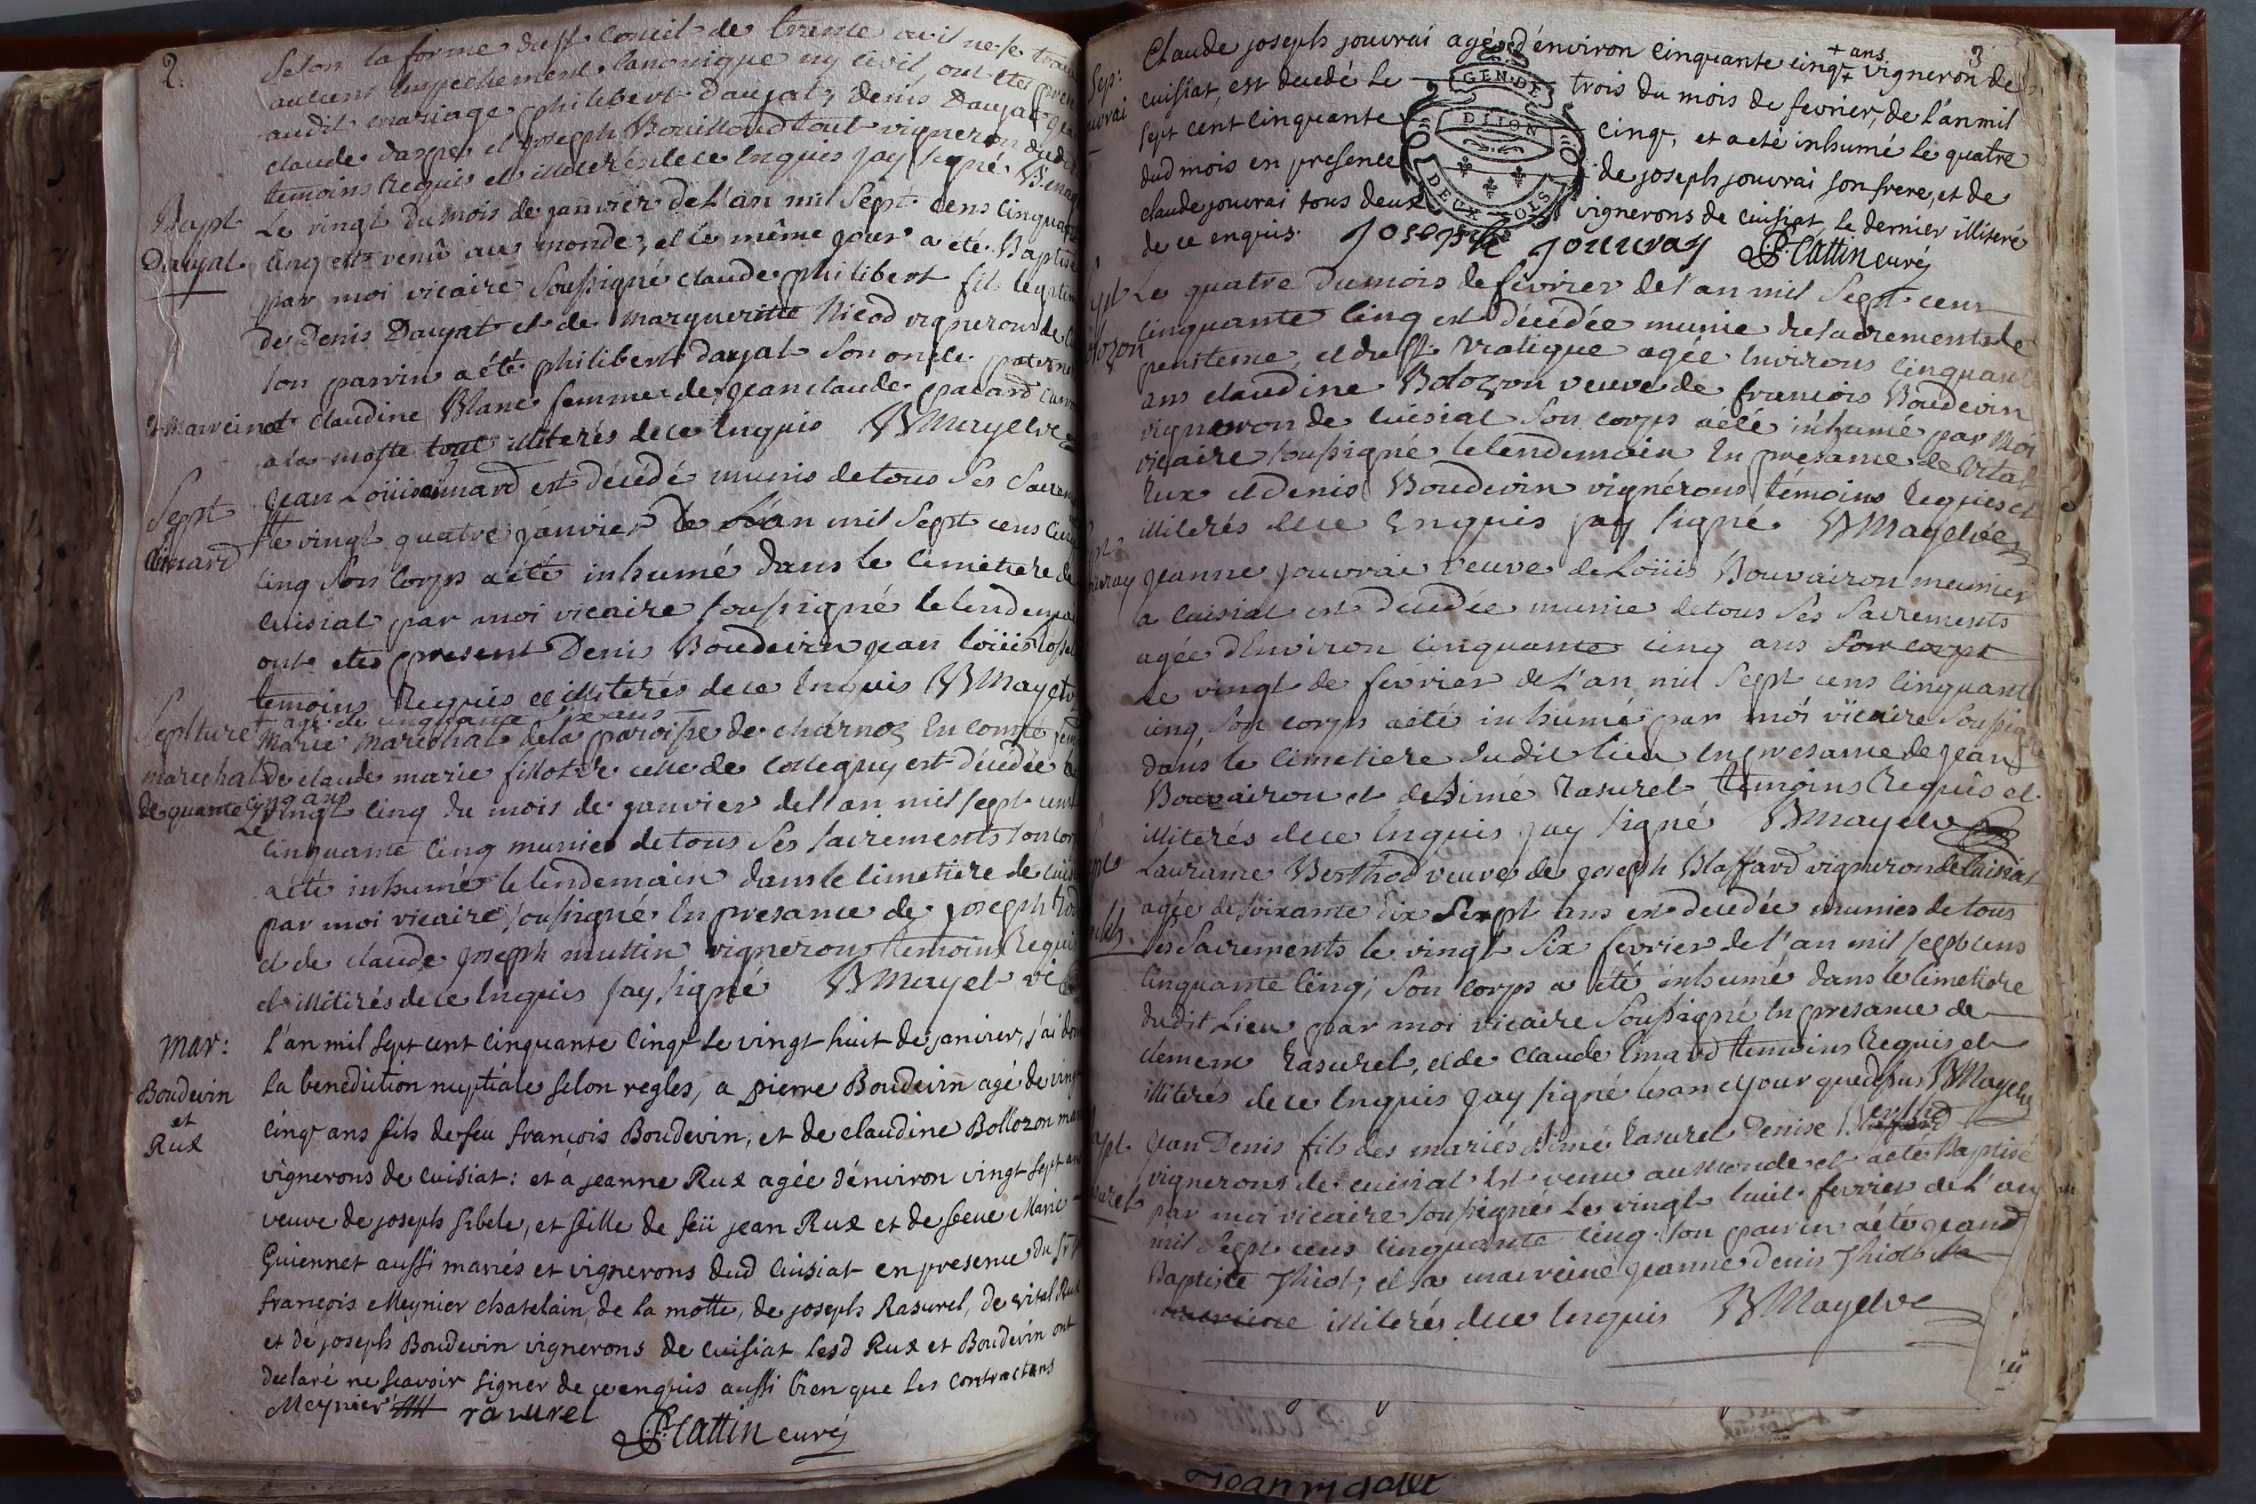 2.
Selon la forme du st concil de trente
aucuns empechement canonique ny civil, ont etes
audit mariage philibert Daujat, denis Daujat
claude et joseph Bouilloud tout vigneron
temoins Requis et illiterés de ce Enquis jay signé
Bapt
Daujat
Le vingt du mois de janvier de l'an mil Sept cens cinquante
cinq est venû au monde, et le même jour a été Baptisé
par moi vicaire soussigné claude philibert fils legitime
de Denis Daujat et de marguerite Nicod vignerons de
son parrin a été philibert dayat son oncle paternel
et claudine Blanc femme de jean claude pacard
a la motte tout illiterés de ce Enquis BMayet vic
Sept
Emard
jean Loüis Emard est décédé munis de tous Ses Sacrem
le vingt quatre janvier de L'an mil Sept cens
cinq Son Corps a été inhumé dans le cimetiere de
cuisiat par moi vicaire soussigné le lendemain
ont etes present Denis Boudevin jean loüis
temoins Requis et illiterés de ce Enquis BMayet
+ agé de cinquante six ans
Seplture
marechal
Marie Marechal de la paroisse de charnoz En comté
de claude marie fillot de celle de Collegny est décédée
de quarante cinq ans
Le vingt cinq du mois de janvier de l'an mil sept cens
cinquante cinq munies de tous Ses sacrements son cor
a été inhumé le lendemain dans le cimetiere de
par moi vicaire soussigné En presance de joseph
et de claude joseph muttin vignerons temoins Requis
et illitirés de ce Enquis jay signé BMayet vic
mar:
Boudevin
et
Rux
L'an mil sept cent cinquante cinq le vingt huit de janvier, j'ai
la benediction nuptiale selon regles, a pierre Boudevin agé de vingt
cinq ans fils de feu françois Boudevin, et de claudine Bollozon
vignerons de cuisiat: et á jeanne Rux agée d'environ vingt sept ans
veuve de joseph sibele, et fille de feü jean Rux et de feüe Marie
Guiennet aussi mariés et vignerons dud cuisiat en presence du sr
françois Meynier chatelain de la motte, de joseph Rasurel, de vital Rux
et de joseph Boudevin vignerons de cuisiat lesd Rux et Boudevin ont
declaré ne scavoir signer de ce enquis aussi bien que les contractans
Meynier rasurel
P. Cattin curé
3
Sep:
jouvrai
Claude joseph jouvrai agé d'environ cinquante cinq + ans vigneron de
cuisiat, est decedé le trois du mois de fevrier, de l'an mil
sept cent cinquante cinq, et a eté inhumé le quatre
dud mois en presence de joseph jouvrai son frere, et de
claude jouvrai tous deux vignerons de cuisiat, le dernier illiteré
de ce enquis. Joseph jouvray P. Cattin curé
GEN. DE
DIJON
DEUX SOLS
Le quatre du mois de fevrier de l'an mil Sept cens
cinquante Cinq est décédée munie du sacrements de
penitence, et du st viatique agée Environs cinquante
ans claudine Bolozon veuve de francois Boudevin
vigneron de cuisiat Son corps a été inhumé par moi
vicaire soussigné le lendemain En presance de vital
Rux et Denis Boudevin vignérons témoins Requis et
illiterés de ce Enquis jay signé BMayet vic
jeanne jouvrai veuve de Loüis Bouvairon meunier
a cuisiat est décédée munie de tous Ses Sacrements
agée d'Environ cinquante cinq ans Son corps
Le vingt de février de L'an mil Sept cens cinquante
cinq, Son corps a été inhumé par moi vicaire soussigné
dans le cimetiere du dit lieu En presance de jean
Bouvairon et de Aimé Rasurel temoins Requis et
illiterés de ce Enquis jay signé BMayet vic
Laurance Berthod veuve de joseph Blaffard vigneron de Cuisiat
agée de soixante dix Sept ans est decedée munies de tous
Ses Sacrements le vingt Six fevrier de l'an mil sept cens
cinquante cinq; Son corps a été inhumé dans le cimetiere
du dit Lieu par moi vicaire Soussigné En presance de
clement Rasurel, et de Claude Emard temoins Requis et
illiterés de ce Enquis jay signé les an et jour que dessus BMayet
jean Denis fils des mariés Aimé Rasurel Denise Berthod
vignerons de cuisiat Est venu au monde et a été Baptisé
par moi vicaire soussigné Le vingt huit fevrier de l'an
mil Sept cens cinquante cinq. Son pairin a été jean
Baptiste Thiot; et sa maireine jeanne denis Thiot
illiterés de ce Enquis BMayet vic